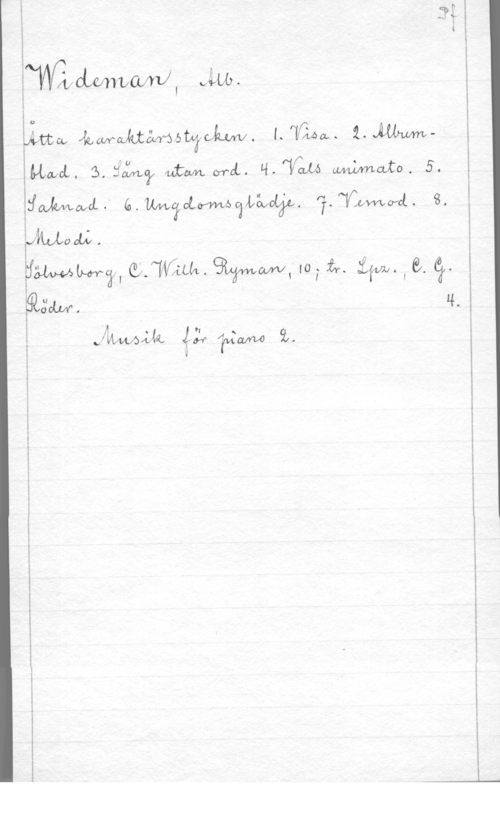 Pf
Wideman, Alb.
Åtta karaktärsstycken. 1. Visa. 2. Album-
blad. 3. Sång utan ord. 4. Vals animato. 5.
Saknad. 6. Ungdomsglädje. 7. Vemod. 8.
Melodi.
Sölvesborg, C. Wilh. Ryman, 10; tr. Lpz., C. G.
Röder. 4.
Musik för piano 2.